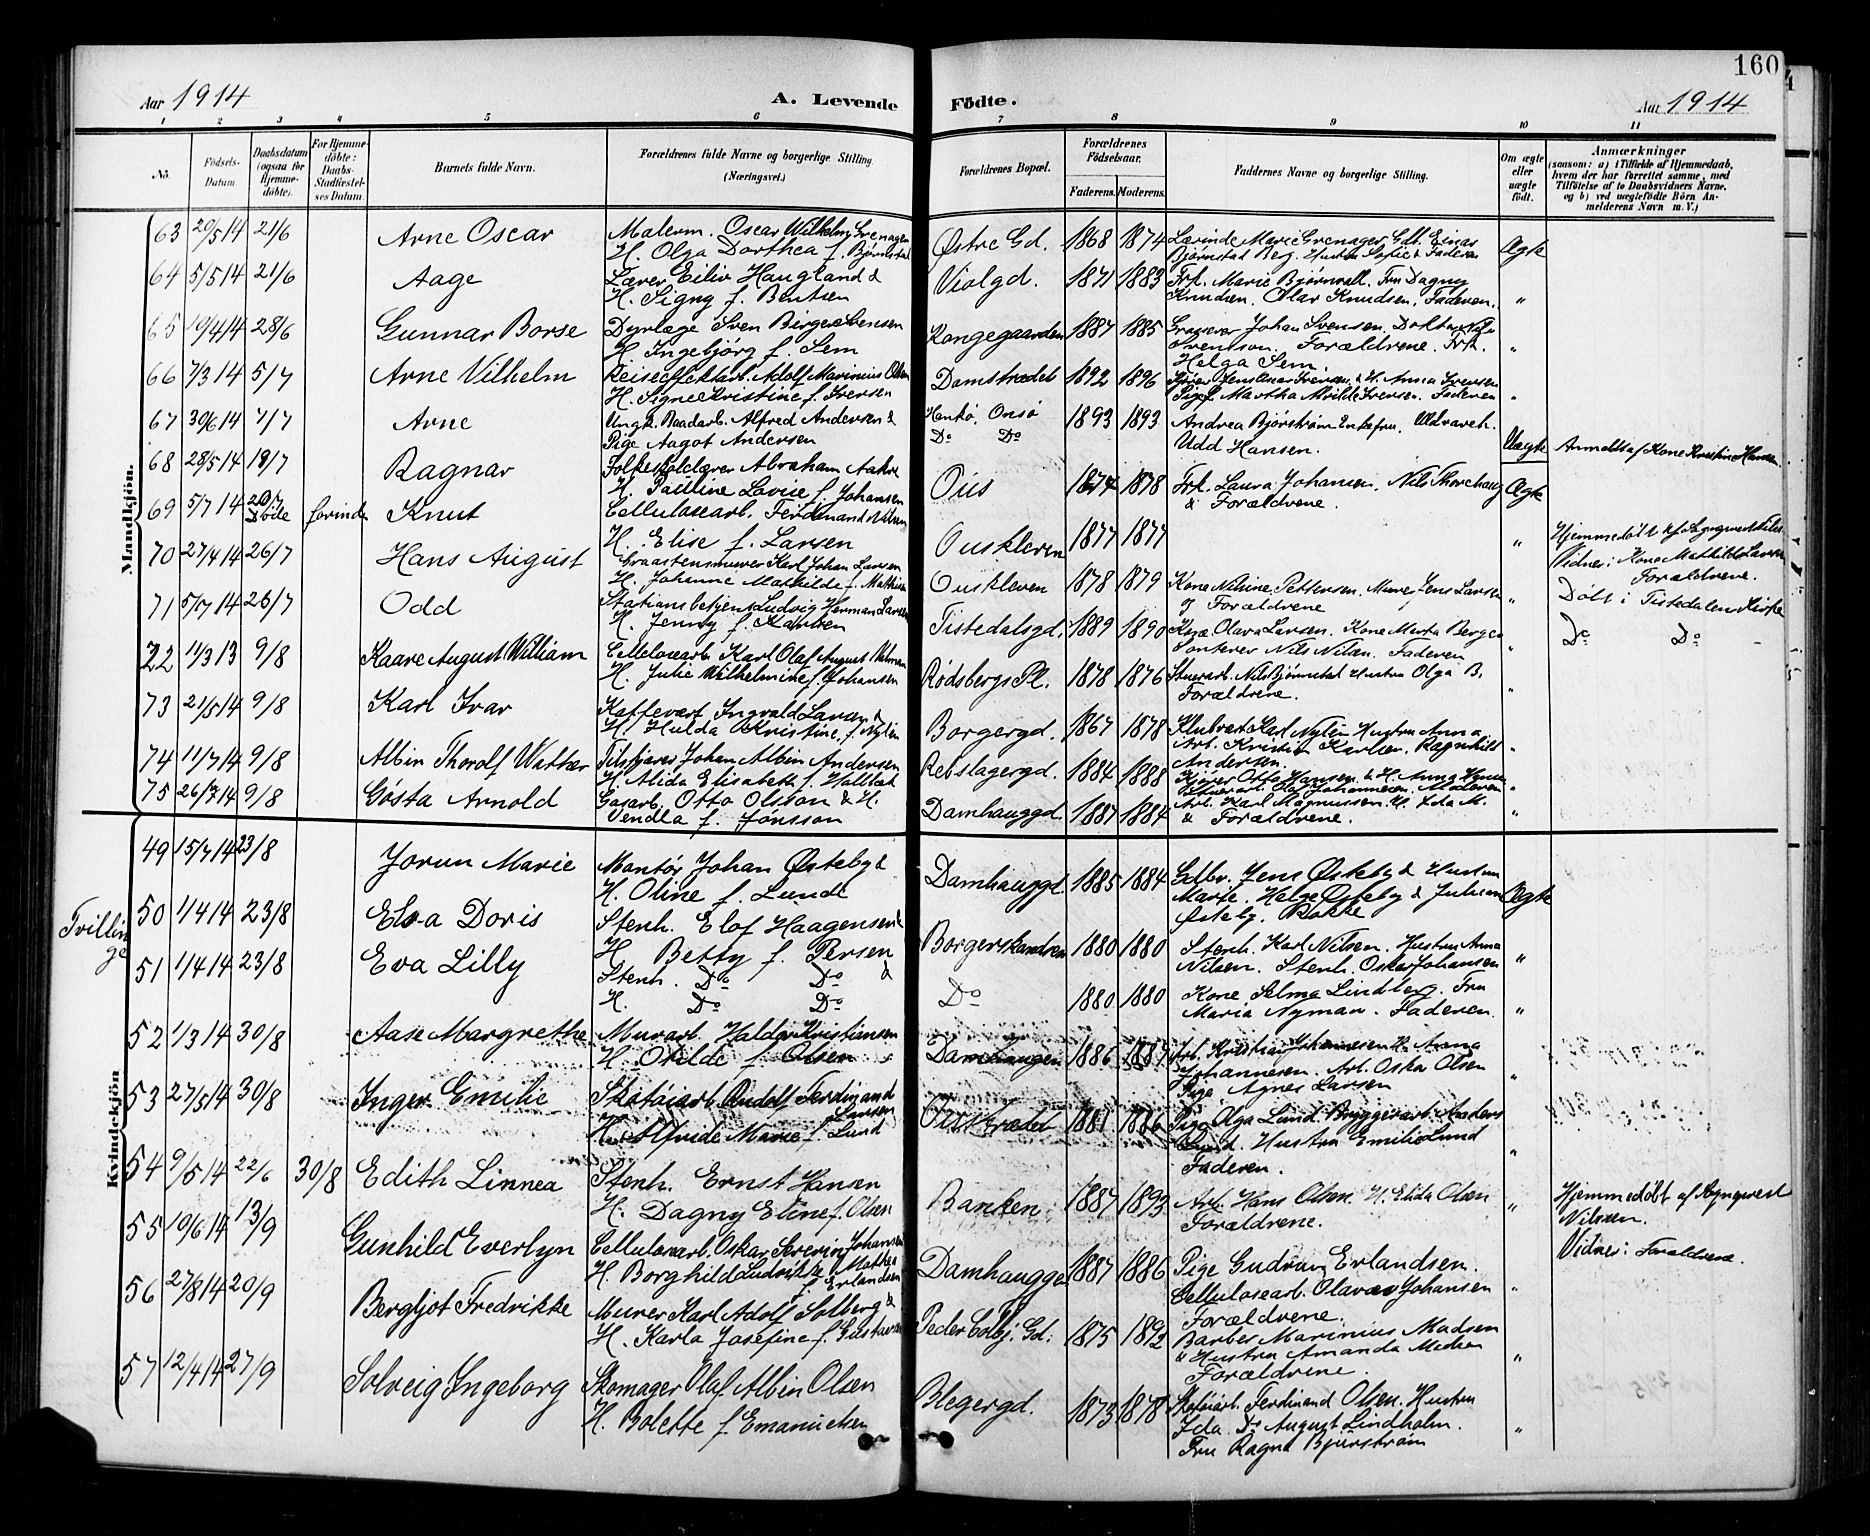 160
Aar 1914
A. Levende
Födte.
Aar 1914
1 2 3 4 5 6 7 8 9 10 11
No.
Födsels-Datum
Daabsdatum (ogsaa for Hjemme-döbte).
For Hjemme-döbte: Daabs-Stadfæstel-ses Datum.
Barnets fulde Navn.
Forældrenes fulde Navne og borgerlige Stilling (Næringsvei.)
Forældrenes Bopæl.
Forældrenes Födselsaar.
Faderens. Moderens.
Faddernes Navne og borgerlige Stilling.
Om ægte eller uægte födt.
Anmærkninger
(saasom: a) i Tilfælde af Hjemmedaab, hvem der har forrettet samme, med Tilföielse af to Daabsvidners Navne, og b) ved uægtefödte Börn An-melderens Navn m. V.)
Mandkjön.
63 20/5 14 21/6 Arne Oscar
Malerm. Oscar Wilhelm Grenager
H. Olga Dorthea f. Bjørnstad
Østre Gd. 1868 1874
Bjørnstad Berg. Hustru Sofie & Faderen
Ægte
64 5/5 14 21/6 Aage
Lærer Eiliv Haugland &
H. Signy f. Bentsen
Violgd. 1871 1883
Frk. Marie Bjørnvall. Fru Dagny
Knudsen. Olav Knudsen. Faderen.
"
65 19/4 14 28/6 Gunnar Borse
Dyrlæge Sven Birger Svensen
H. Ingebjörg f. Sem
Kongegaarden 1887 1885
Johan Svensen. Doktor
Svensson. Forældrene. Frk.
Helga Sem
"
66 7/3 14 5/7 Arne Vilhelm
Reiseeffektarb. Adolf Marinius Olsen
H. Signe Kristine f. Iversen
Damstrædet 1892 1896
Pige Martha Alvilde Iversen. Faderen
"
67 30/6 14 7/7 Arne
Ungk. Baadarb. Alfred Andersen &
Pige Aagot Andersen
Hankø, Onsø
Do Do
1893 1893
Andrea Bjørstrøm Enkefru.
Udd Hansen.
Uægte
Anmeldt af Kone Kristine Hansen
68 28/5 14 19/7 Ragnar
Folkeskolelærer Abraham Aakre
H. Pauline Lovise f. Johansen
Ous 1874 1878
Frk. Laura Johansen. Nils Thorehaug
& Forældrene.
Ægte
69 5/7 14 20/7 Knut
Celluloosearb. Ferdinand Nilsen
H. Elise f. Larsen
Ouskleven 1877 1877
"
Vidner: Kone Mathilde Larsen
Forældrene.
70 27/4 14 26/7 Hans August
Graastensmurer Karl Johan Larsen
H. Johanne Mathilde f.
Ouskleven 1878 1879
Kone Nilsine Pettersen. Murer Jens Larsen
og Forældrene
"
Døbt i Tistedalen Kirke
71 5/7 14 26/7 Odd
Stationsbetjent Ludvig Herman Larsen
H. Jenny f. Karlsen
Tistedalsgd. 1889 1890
Kone Olava Larsen. Kone Marta Berger
Nils Nilsen. Faderen
"
Do Do
72 11/3 13 9/8 Kaare August William
Cellulosearb. Karl Olaf August
H. Julie Wilhelmine f. Johansen
Rødsbergs Pl. 1878 1876
Stuerarb. Nils Bjørnstad Hustru Olga B.
Forældrene.
"
73 21/5 14 9/8 Karl Ivar
Kaffevært Ingvald Larsen &
H. Hulda Kristine f. Nylén
Borgergd. 1867 1878
Klubvært Karl Nylén Hustru Anna
Arb. Kristian Karlsen. Ragnhild
Andersen.
"
74 11/7 14 9/8 Albin Thorolf Walther
Filsfjører Johan Albin Andersen
H. Alida Elisabeth f. Hallbak
Rebslagergd. 1884 1888
Kjører Otto Hansen & H. Anna Hansen
Olaf Johannesen. Moderen
"
75 26/7 14 9/8 Gösta Arnold
Gasarb. Otto Olsson & H.
Vendla f. Jonsson
Damhauggd. 1887 1884
Arb. Karl Magnussen. H. Ida M.
& Forældrene.
"
Kvindekjön
49 15/7 14 23/8 Jorun Marie
Montør Johan Østeby &
H. Oline f. Lunde
Damhauggd 1885 1884
Gdbr. Jens Østeby & Hustru
Marte. Helge Østeby & Julianne
Østeby. Bakke
Ægte
Tvillinge
50 1/4 14 23/8 Elsa Doris
Stenh. Elof Haagensen &
H. Betty f. Persen
Borgerskansen 1880 1880
Stenh. Karl Nilsen. Hustru Anna
Nilsen. Stenh. Oskar Johansen
"
51 1/4 14 23/8 Eva Lilly
Stenh. Do Do &
H. Do Do
Do 1880 1880
Kone Selma Lindberg. Fru
Maria Nyman. Faderen.
"
52 1/3 14 30/8 Aase Margrethe
Murarb. Haldor Kristiansen
H. Otilde f. Olsen
Damhaugen 1886 1887
Arb. Kristian Johannesen H. Anna
Johannesen. Arb. Oskar Olsen
Pige Agnes Larsen
"
53 27/5 14 30/8 Inger Emilie
Skotøiarb. Rudolf Ferdinand
Larsen
H. Alfride Marie f. Lund
Fisstrædet 1881 1886
Pige Olga Lund. Bryggeriarb. Anders
Lund. Hustru Emilie Lund
Faderen.
"
54 9/5 14 22/6 30/8 Edith Linnea
Stenh. Ernst Hansen
H. Dagny Eline f. Olsen
Banken 1887 1893
Arb. Hans Olsen. H. Elida Olsen
Forældrene.
"
Hjemmedøbt af Sogneprest
Nilssen.
Vidner: Forældrene.
55 10/6 14 13/9 Gunhild Everlyn
Cellulosearb. Oskar Severin Johansen
H. Borghild Ludvikke Mathea
f. Erlandsen
Damhaugge 1887 1886
Pige Gudrun Erlandsen.
Cellulosearb. Olaves Johansen
Forældrene.
"
56 27/8 14 20/9 Bergljot Fredrikke
Murer Karl Adolf Solberg &
H. Karla Josefine f. Gustavsen
Peder Colbj. Gd: 1875 1892
Barber Marinius Madsen
& Hustru Amanda Madsen
Forældrene
"
57 12/4 14 27/9 Solveig Ingeborg
Skomager Olaf Albin Olsen
H. Bolette f. Emanuelsen
Blegergd. 1873 1878
Skotøiarb. Ferdinand Olsen. Hustru
Ida Do August Lindholm.
Fru Ragna Bjurstrøm
"